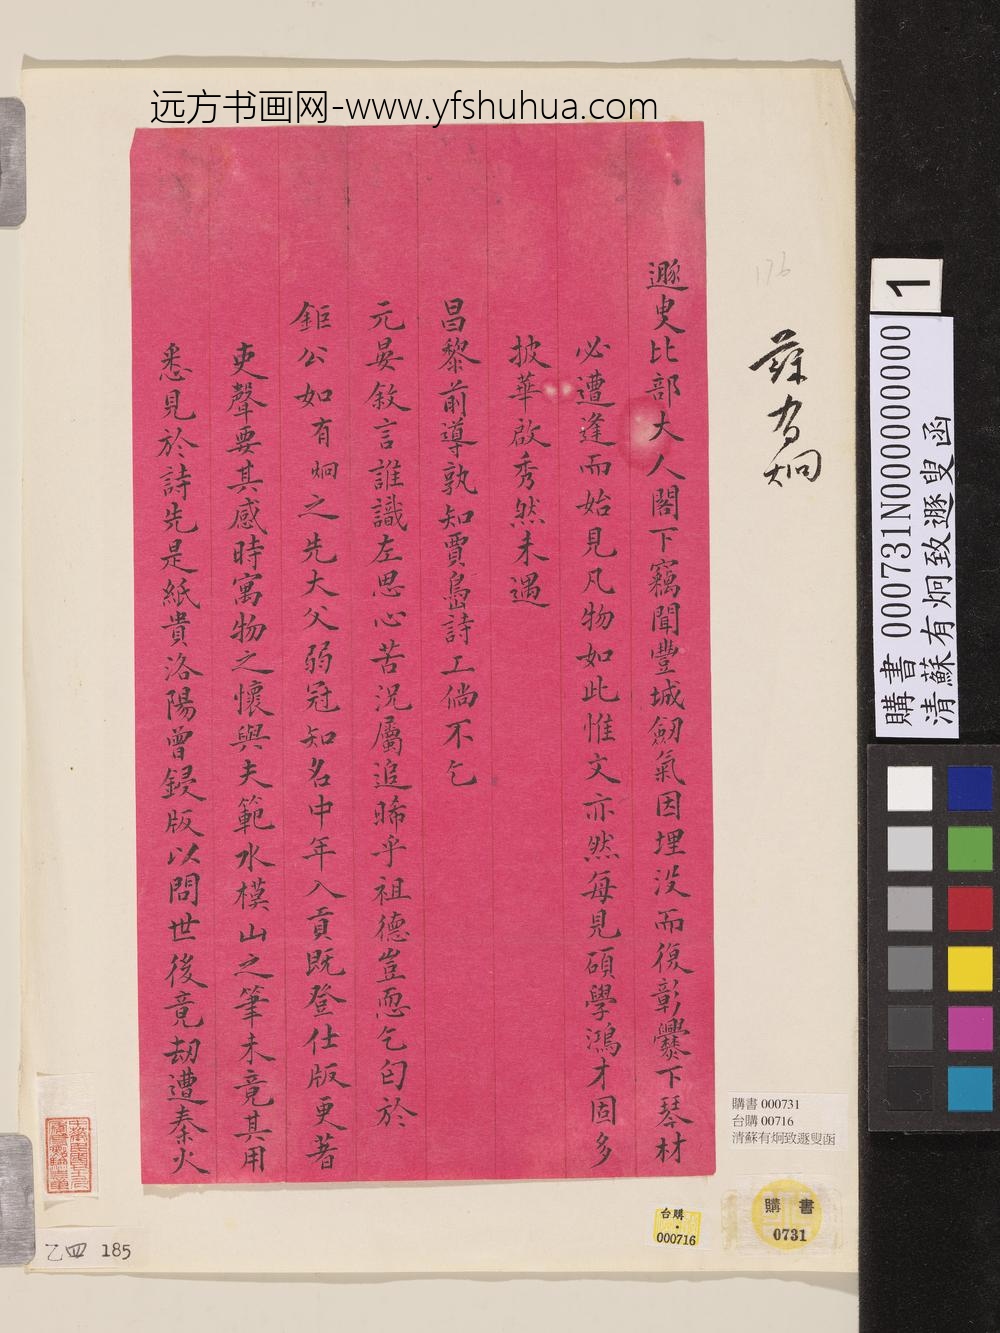 远方书画网-www.yfshuhua.com
遯叟比部大人閣下竊聞豐城劒氣因埋没而復彰爨下琴材
必遭逢而始見凡物如此惟文亦然每見碩學鴻才固多
披華啟秀然未遇
昌黎前導孰知賈島詩工倘不乞
元晏敘言誰識左思心苦況屬追晞乎祖德豈恧乞匄於
鉅公如有炯之先大父弱冠知名中年入貢既登仕版更著
吏聲要其感時寓物之懷與夫範水模山之筆未竟其用
悉見於詩先是紙貴洛陽曾鋟版以問世後竟劫遭秦火
176
蘇有炯
1
購書 000731N000000000
清蘇有炯致遯叟函
購書 000731
台購 00716
清蘇有炯致遯叟函
購書
0731
台購
000716
乙四 185